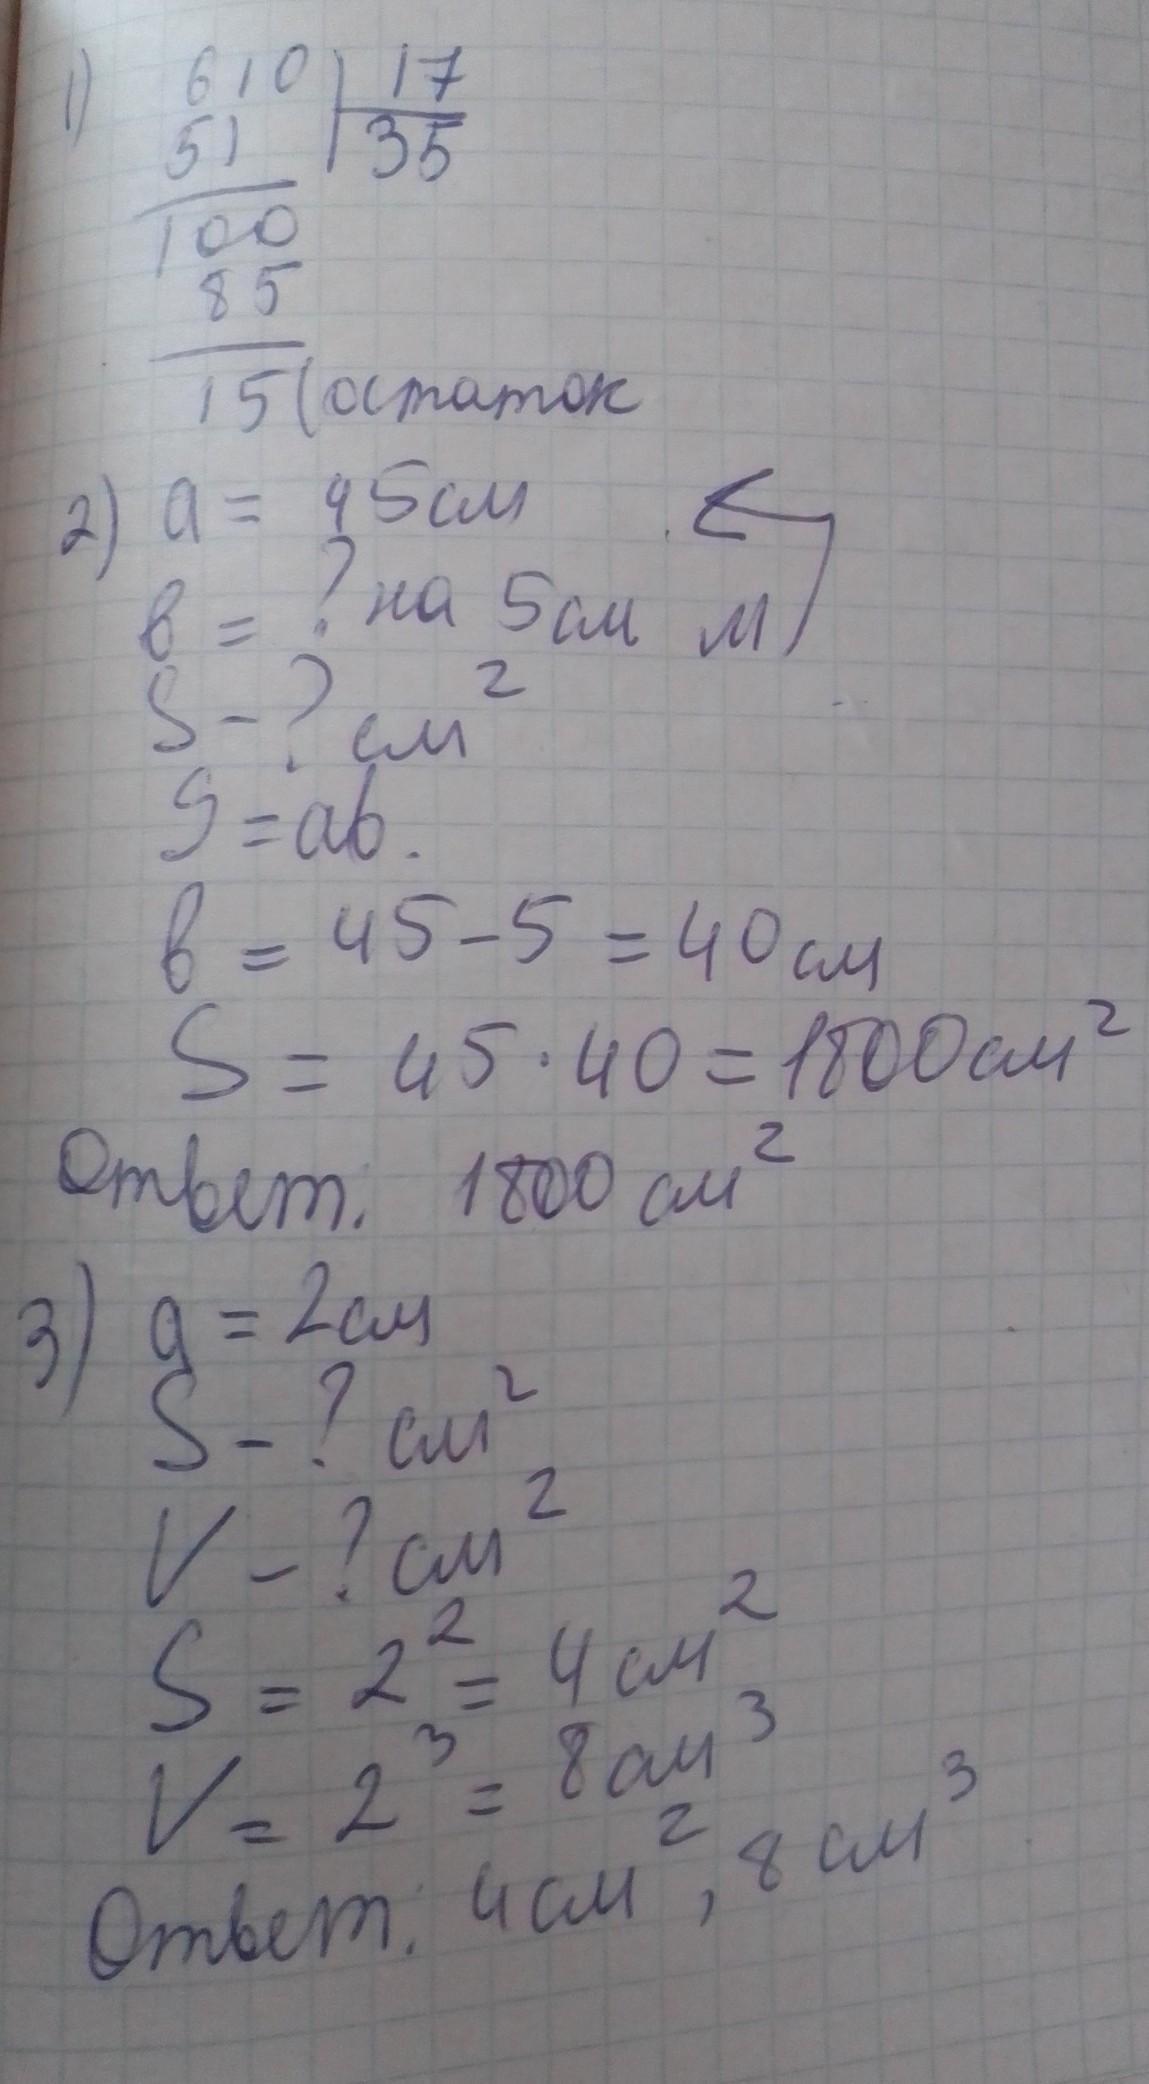 1) 610 | 17
51 | 35
100
85
15 (остаток
2) a = 45см
в = ? на 5см м
S - ? см²
S = ab.
в = 45 - 5 = 40 см
S = 45 · 40 = 1800 см²
Ответ. 1800 см²
3) a = 2см
S - ? см²
V - ? см²
S = 2² = 4 см²
V = 2³ = 8 см³
Ответ. 4 см², 8 см³